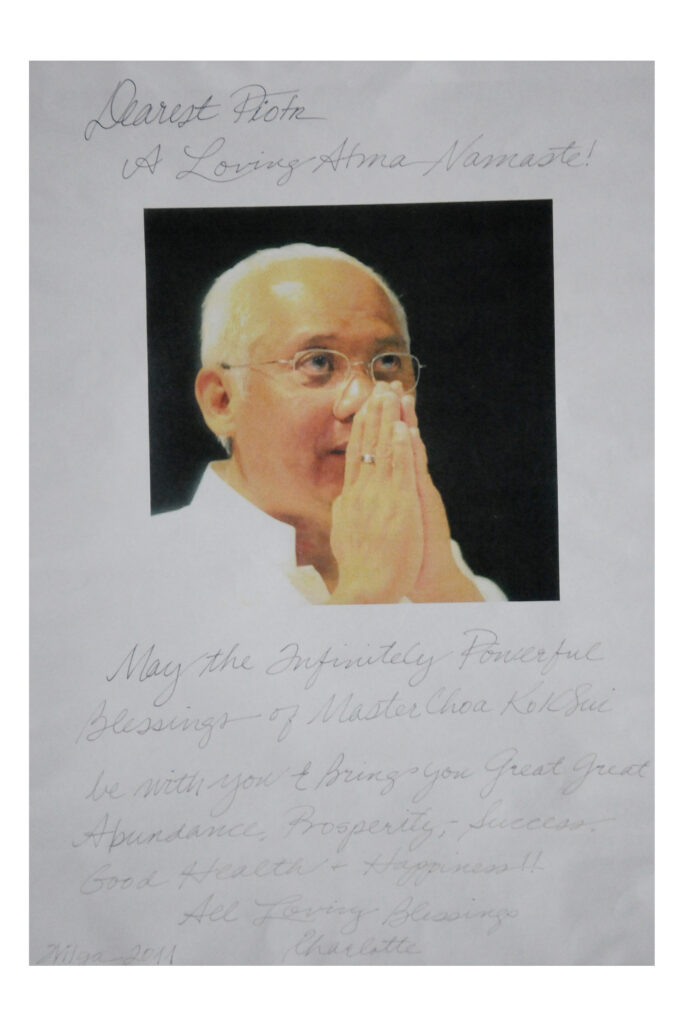 Dearest Piotr
A Loving Atma Namaste!
May the Infinitely Powerful
Blessings of Master Choa Kok Sui
be with you & Brings you Great Great
Abundance, Prosperity, - Success.
Good Health + Happiness!!
All Loving Blessings
Charlotte
2011